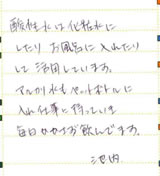 酸性水は化粧水に
したりお風呂に入れたり
して活用しています。
アルカリ水もペットボトルに
入れ仕事に持っていき
毎日かかさず飲んでます。
池内